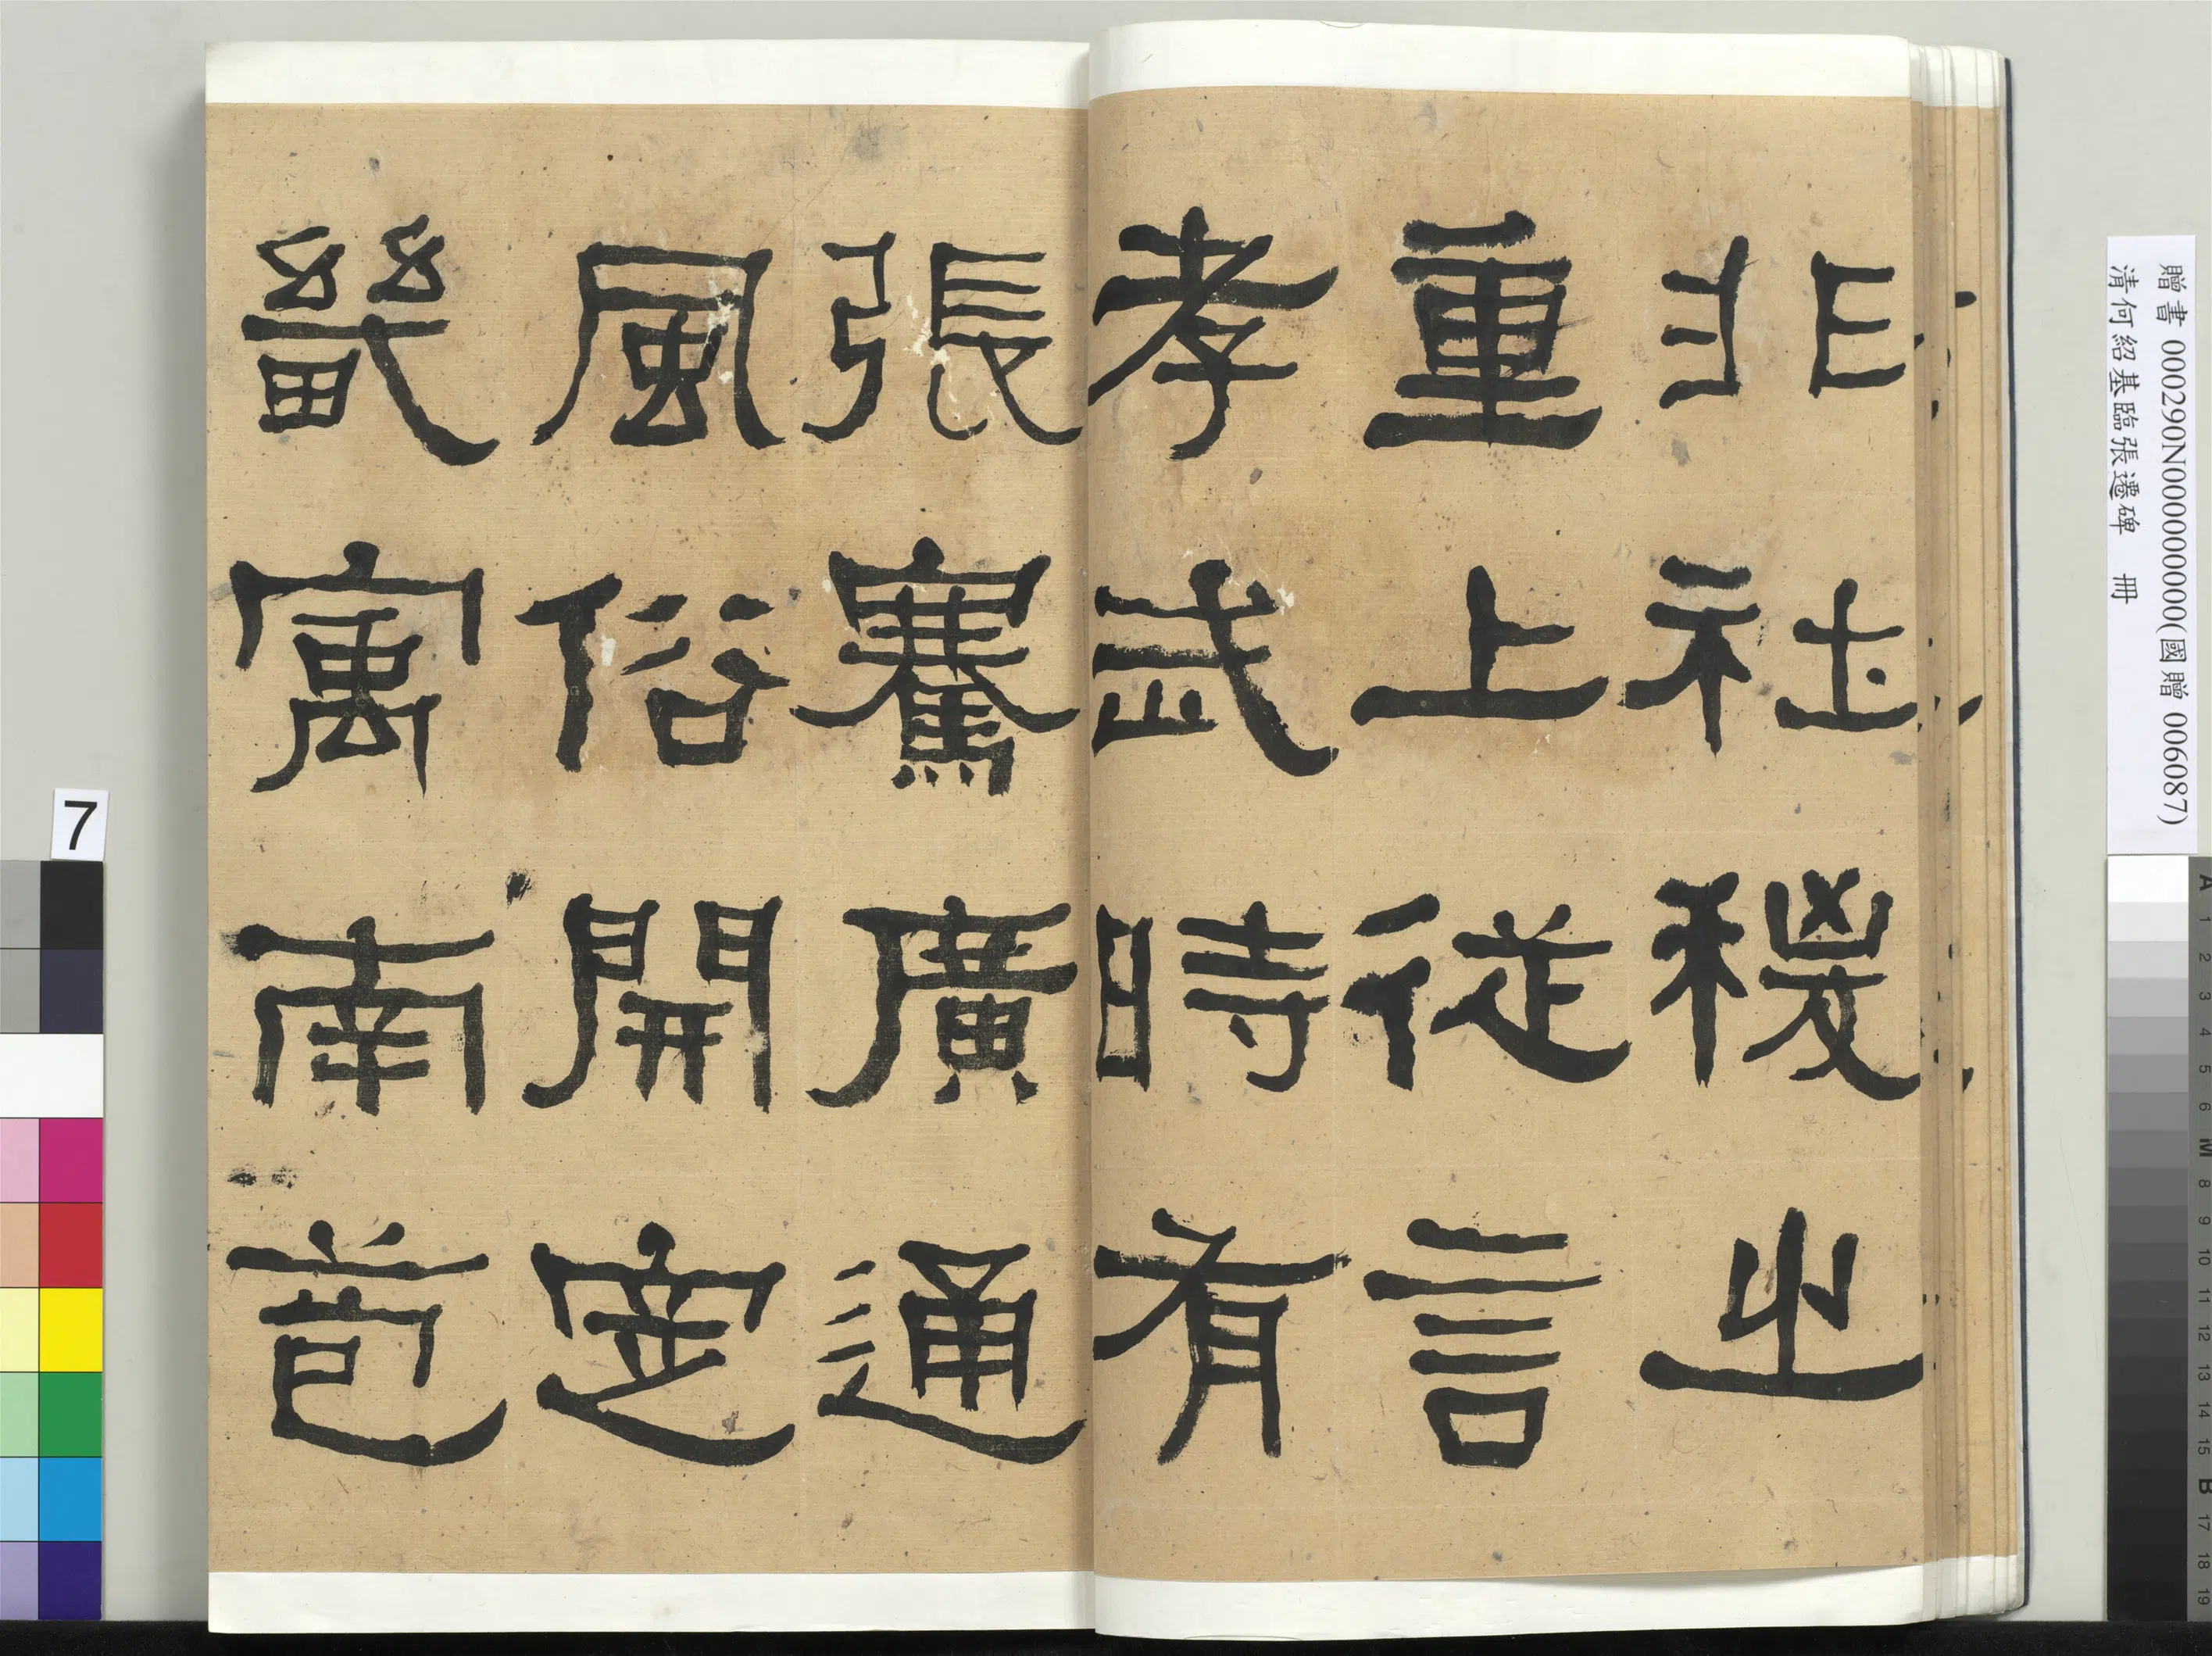 非社稷之
重上從言
孝武時有
張騫廣通
風俗開定
畿寓南苞
贈書 000290N000000000(國贈 006087)
清何紹基臨張遷碑 冊
7
A 1 2 3 4 5 6 M 8 9 10 11 12 13 14 15 B 17 18 19